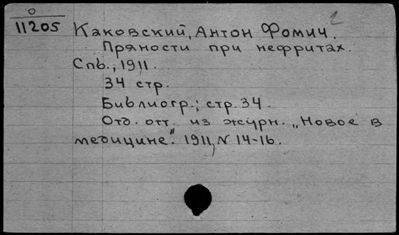 0
11205
2
Каковский, Антон Фомич.
Пряности при нефритах.
Спб., 1911.
34 стр.
Библиогр.; стр. 34.
Отд. отт. из журн. „Новое в
медицине". 1911, N 14-16.